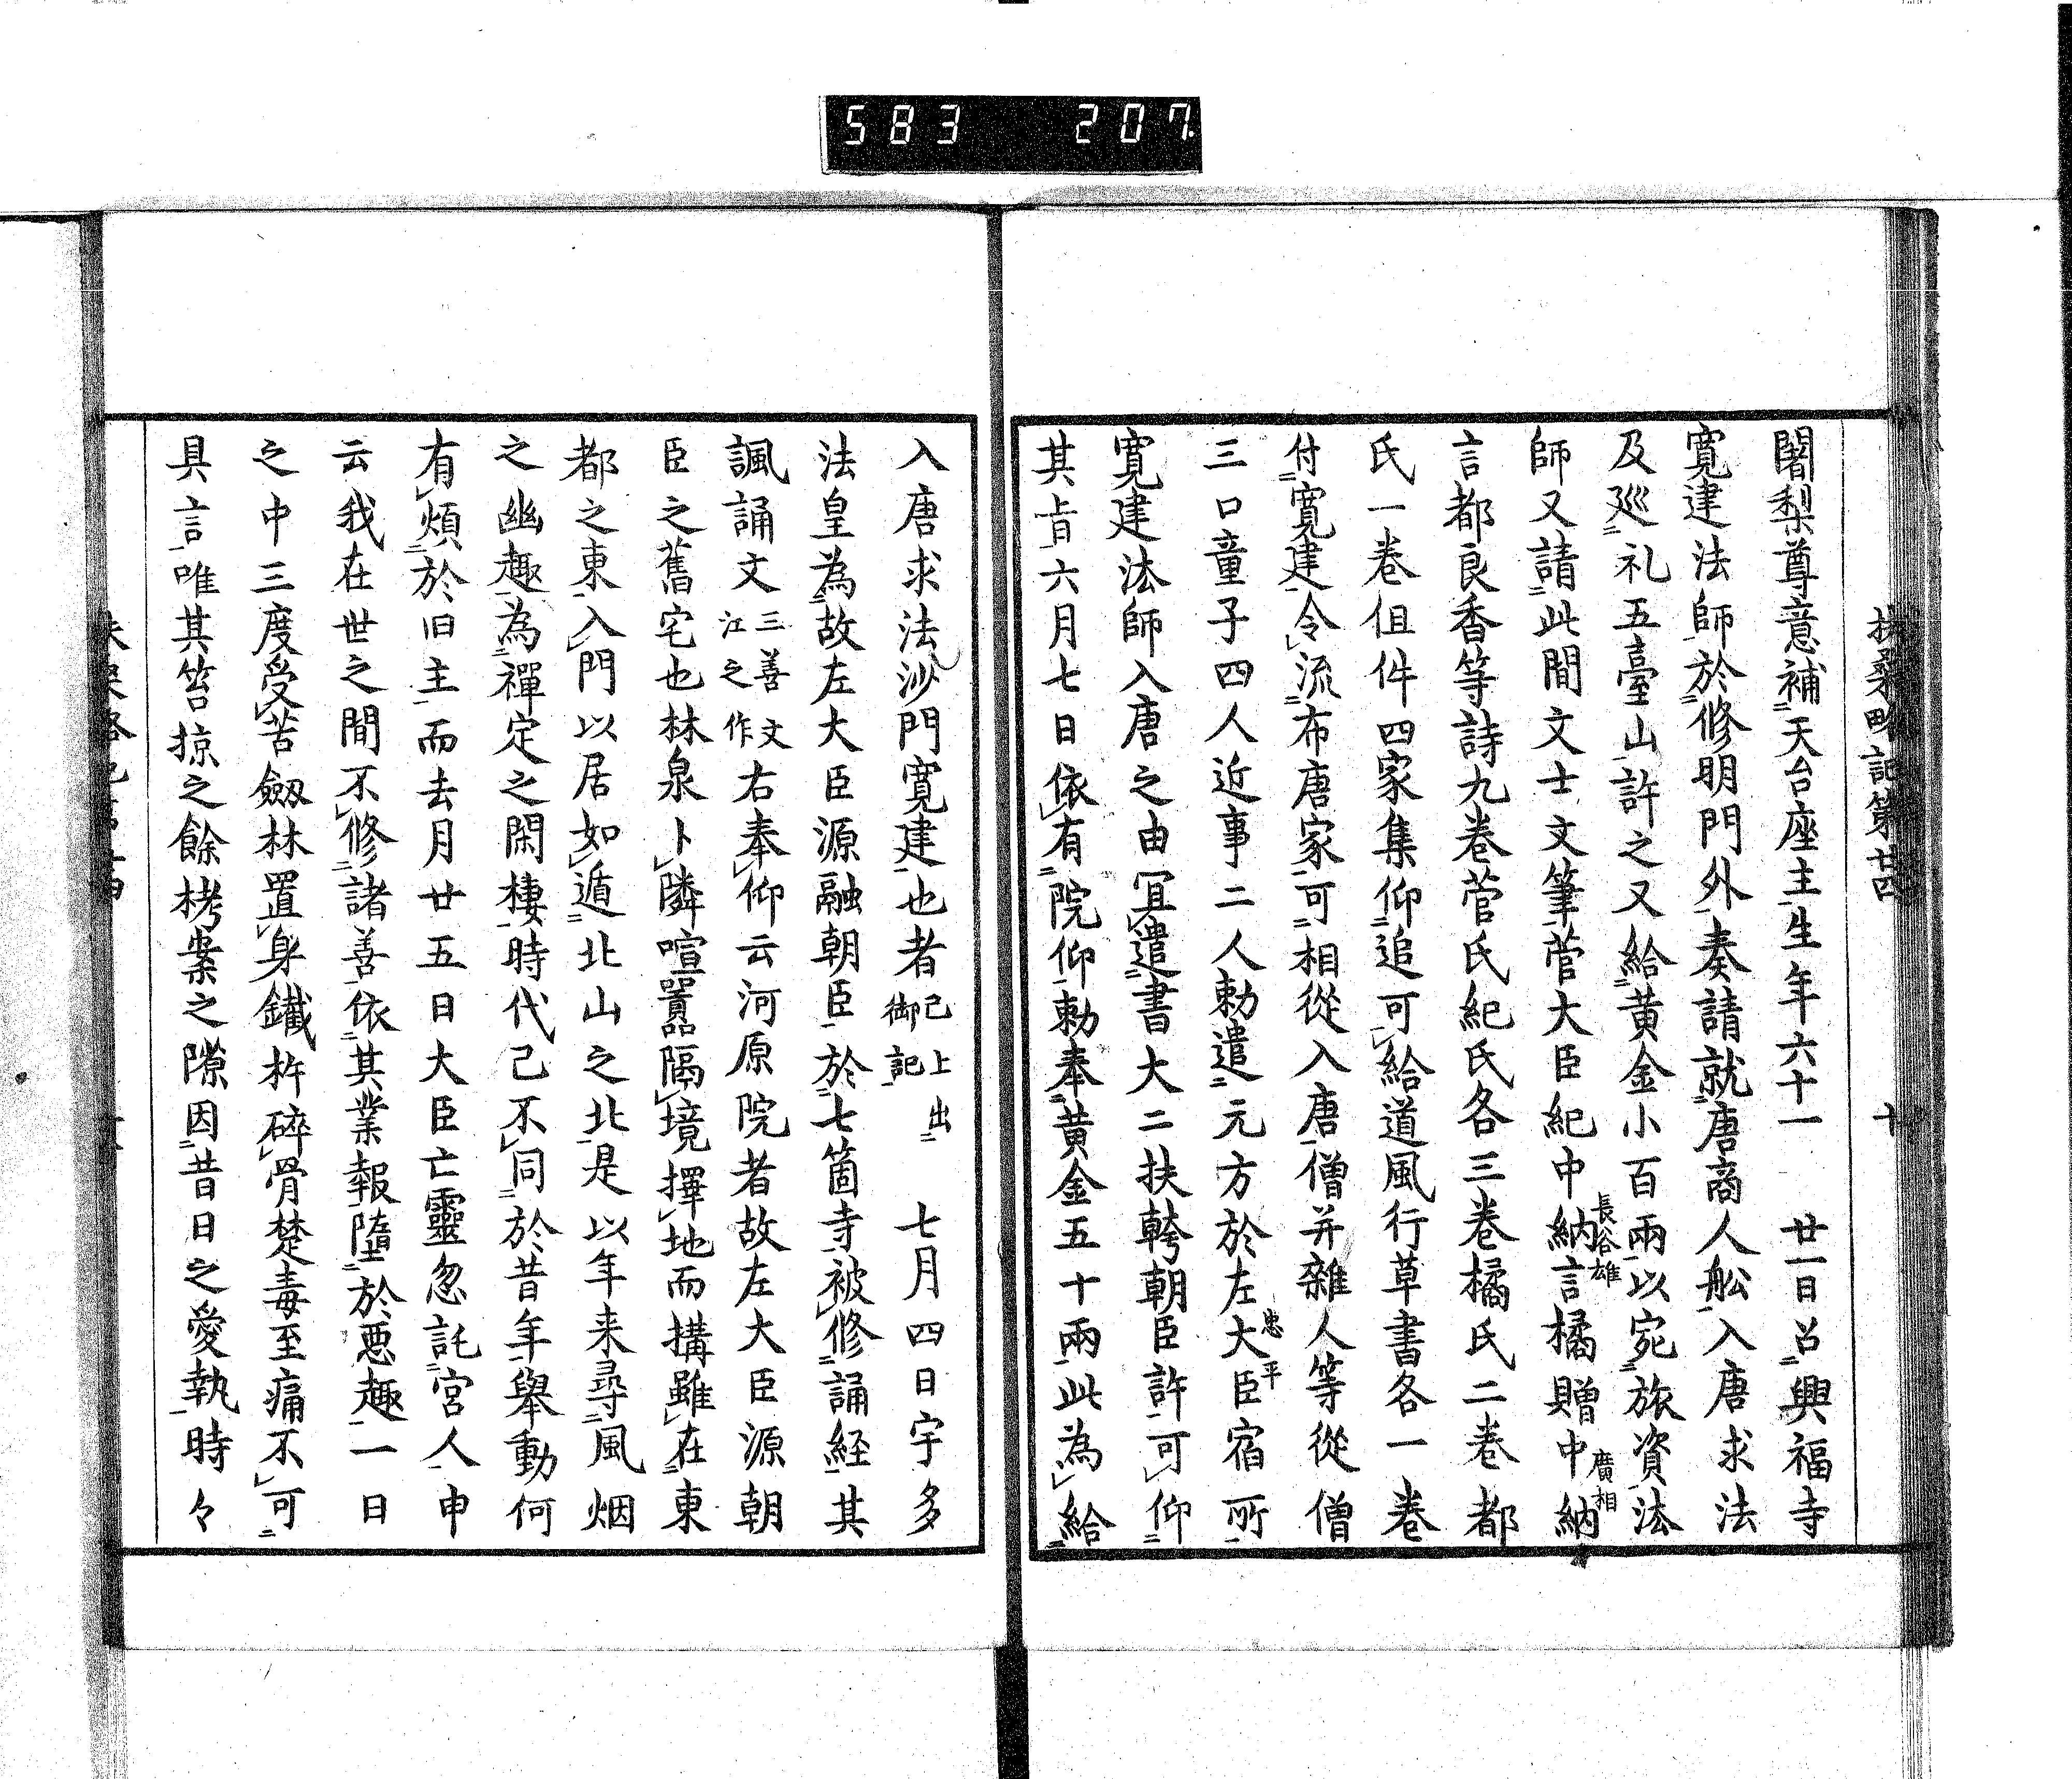 583 207
扶桑略記第廿四 十
闍梨尊意補天台座主生年六十一 廿一日召興福寺
寛建法師於修明門外奏請就唐商人舩入唐求法
及巡礼五臺山許之又給黄金小百兩以宛旅資法
師又請此間文士文筆菅大臣紀中納言橘贈中納
長谷雄
廣相
言都良香等詩九巻菅氏紀氏各三巻橘氏二巻都
氏一巻但件四家集仰追可給道風行草書各一巻
付寛建令流布唐家可相從入唐僧并雜人等從僧
三口童子四人近事二人勅遣元方於左大臣宿所
忠平
寛建法師入唐之由冝遣書大二扶幹朝臣許可仰
其旨六月七日依有院仰勅奉黄金五十兩此為給
入唐求法沙門寛建也者已上出御記 七月四日宇多
法皇為故左大臣源融朝臣於七箇寺被修誦経其
諷誦文三善文江之作右奉仰云河原院者故左大臣源朝
臣之舊宅也林泉卜隣喧囂隔境擇地而構雖在東
都之東入門以居如遁北山之北是以年来尋風烟
之幽趣為禪定之閑棲時代已不同於昔年舉動何
有煩於旧主而去月廿五日大臣亡靈忽託宮人申
云我在世之間不修諸善依其業報墮於悪趣一日
之中三度受苦劔林置身鐵杵碎骨楚毒至痛不可
具言唯其笞掠之餘栲案之隙因昔日之愛執時々